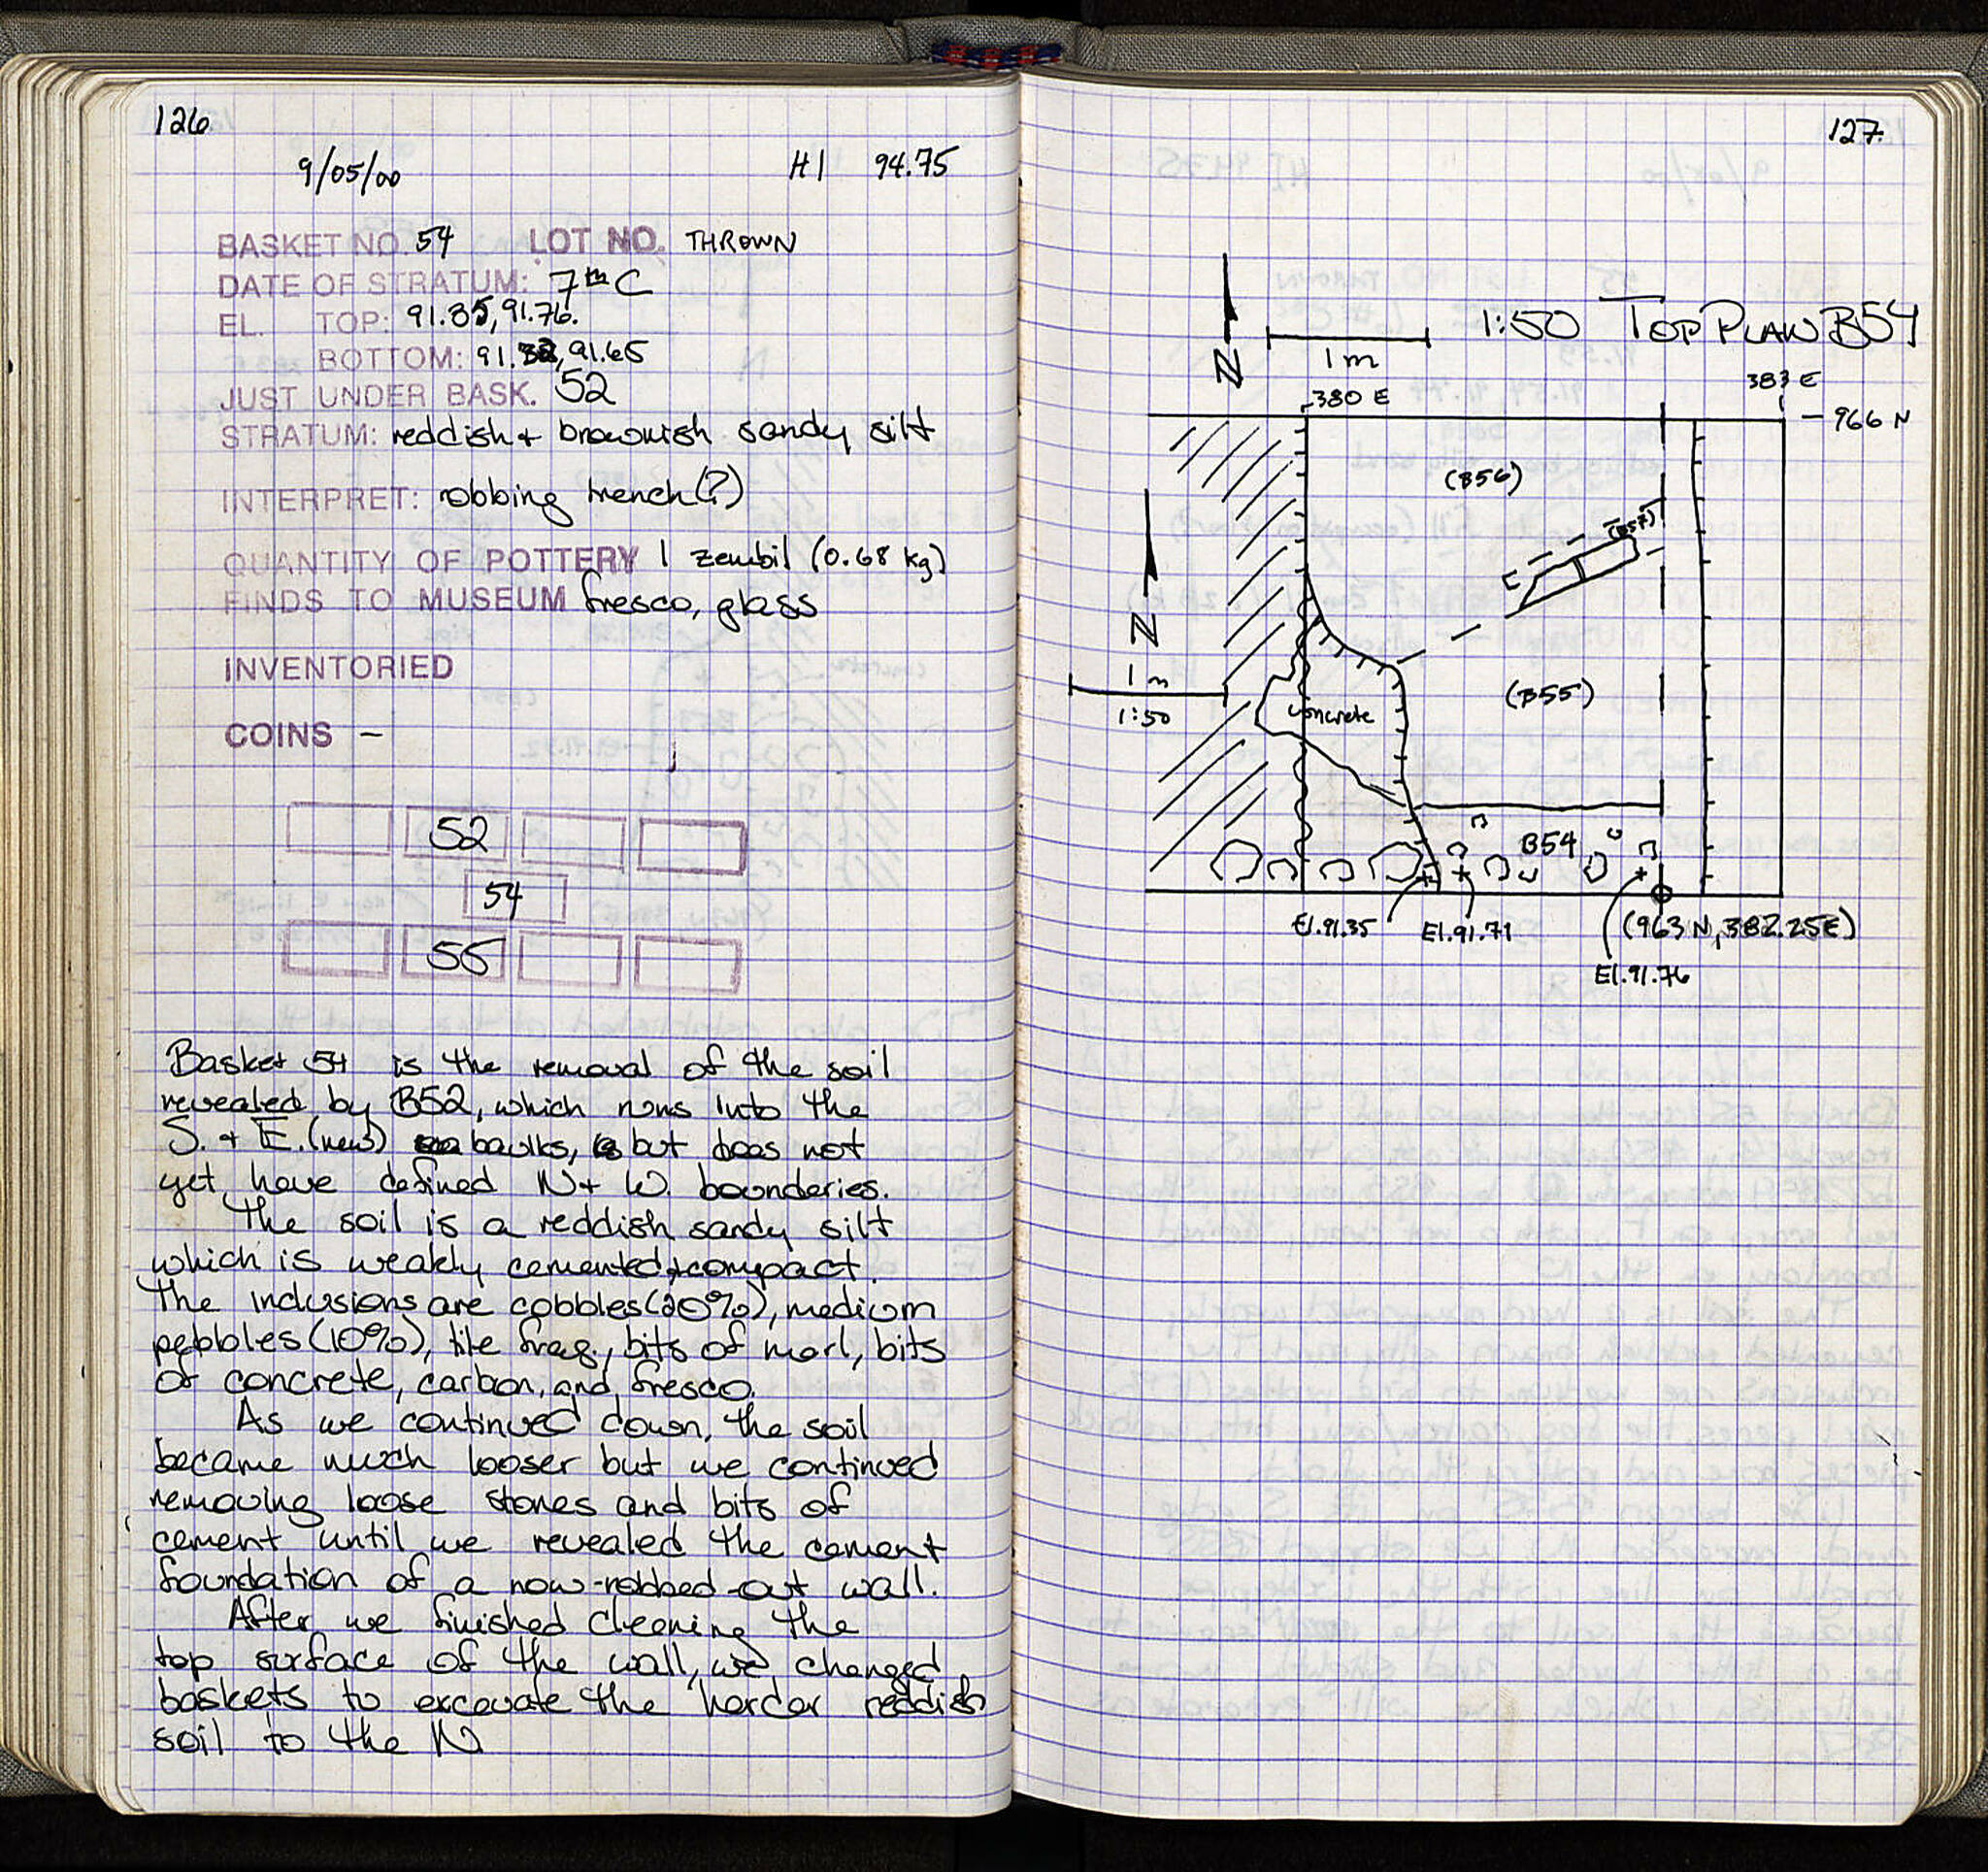 126.
9/05/00 HI 94.75
BASKET NO. 54 LOT NO. THROWN
DATE OF STRATUM: 7th C
EL. TOP: 91.85, 91.76.
BOTTOM: 91.32, 91.65
JUST UNDER BASK. 52
STRATUM: reddish + brownish sandy silt
INTERPRET: robbing trench(?)
QUANTITY OF POTTERY 1 zembil (0.68 kg)
FINDS TO MUSEUM fresco, glass
INVENTORIED
COINS –
52
54
55
Basket 54 is the removal of the soil
revealed by B52, which runs into the
S. + E. (new) baulks, but does not
yet have defined N + W. bounderies.
The soil is a reddish sandy silt
which is weakly cemented + compact.
The inclusions are cobbles (20%), medium
pebbles (10%), tile frag., bits of marl, bits
of concrete, carbon, and fresco.
As we continued down, the soil
became much looser but we continued
removing loose stones and bits of
cement until we revealed the cement
foundation of a now-robbed-out wall.
After we finished cleaning the
top surface of the wall, we changed
baskets to excavate the harder reddish
soil to the N
127.
1:50 TOP PLAN B54
N
1 m
380 E
383 E
966 N
(B56)
(B57)
N
1 m
1:50
(B55)
concrete
B54
El. 91.35
El. 91.71
(963 N, 382.25E)
El. 91.76